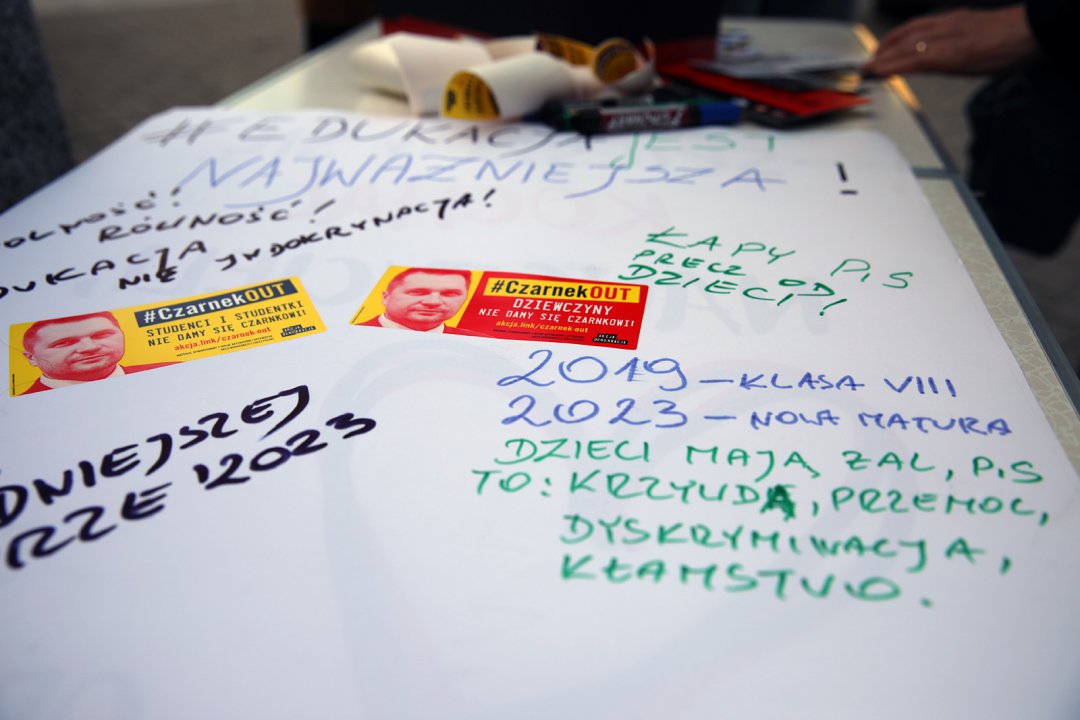 #EDUKACJA JEST
NAJWAŻNIEJSZA !
OLNOŚĆ!
RÓWNOŚĆ!
DUKACJA
NIE INDOKRYNACJA!
ŁAPY PiS
PRECZ OD
DZIECI!
#CzarnekOUT
STUDENCI I STUDENTKI
NIE DAMY SIĘ CZARNKOWI!
akcja.link/czarnek-out
AKCJA
DEMOKRACJA
#CzarnekOUT
DZIEWCZYNY
NIE DAMY SIĘ CZARNKOWI!
akcja.link/czarnek-out
AKCJA
DEMOKRACJA
2019 – KLASA VIII
2023 – NOWA MATURA
DZIECI MAJĄ ŻAL, PiS
TO: KRZYWDA, PRZEMOC,
DYSKRYMINACJA,
KŁAMSTWO.
DNIEJSZEJ
RZE '2023